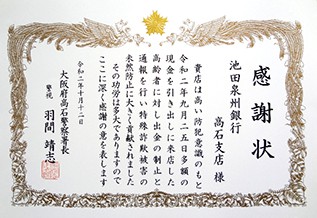 感謝状
池田泉州銀行
高石支店 様
貴店は高い防犯意識のもと
令和二年九月二五日多額の
現金を引き出しに来店した
高齢者に対し出金の制止と
通報を行い特殊詐欺被害の
未然防止に大きく貢献されました
その功労は多大でありますので
ここに深く感謝の意を表します
令和二年十月十二日
大阪府高石警察署長
警視 羽間 靖志